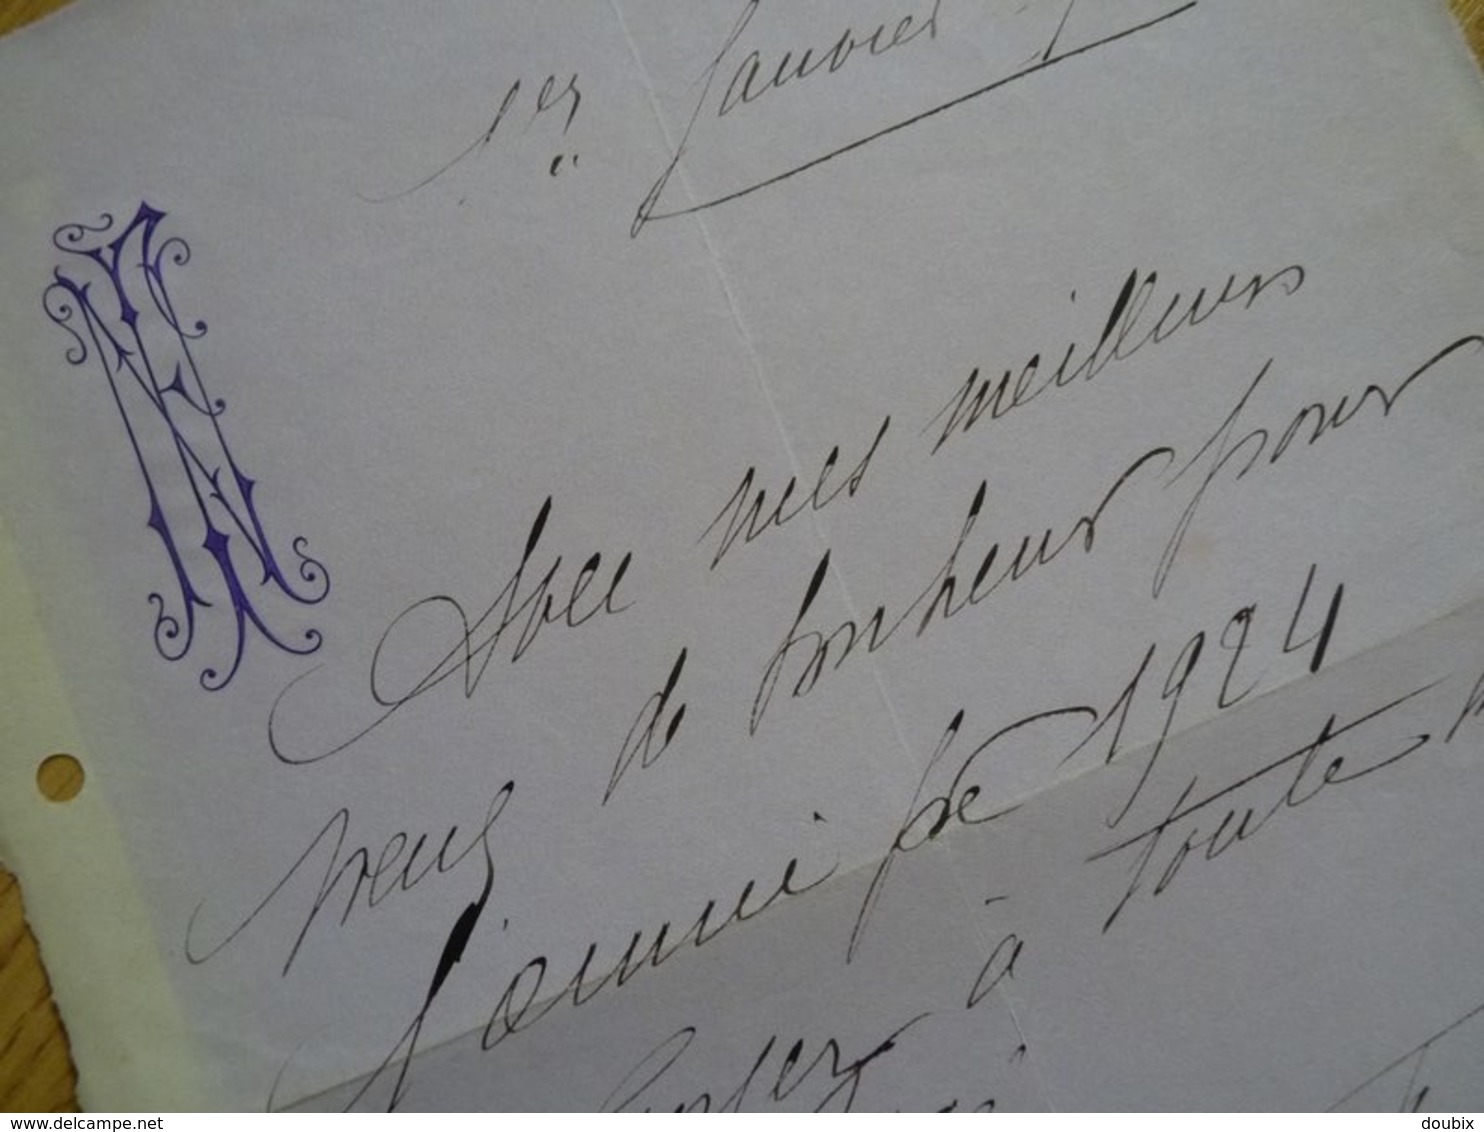 1er Janvier
Avec mes meilleurs
vœux de bonheur pour
l'année 1924
à toute
delcampe.net
doubix